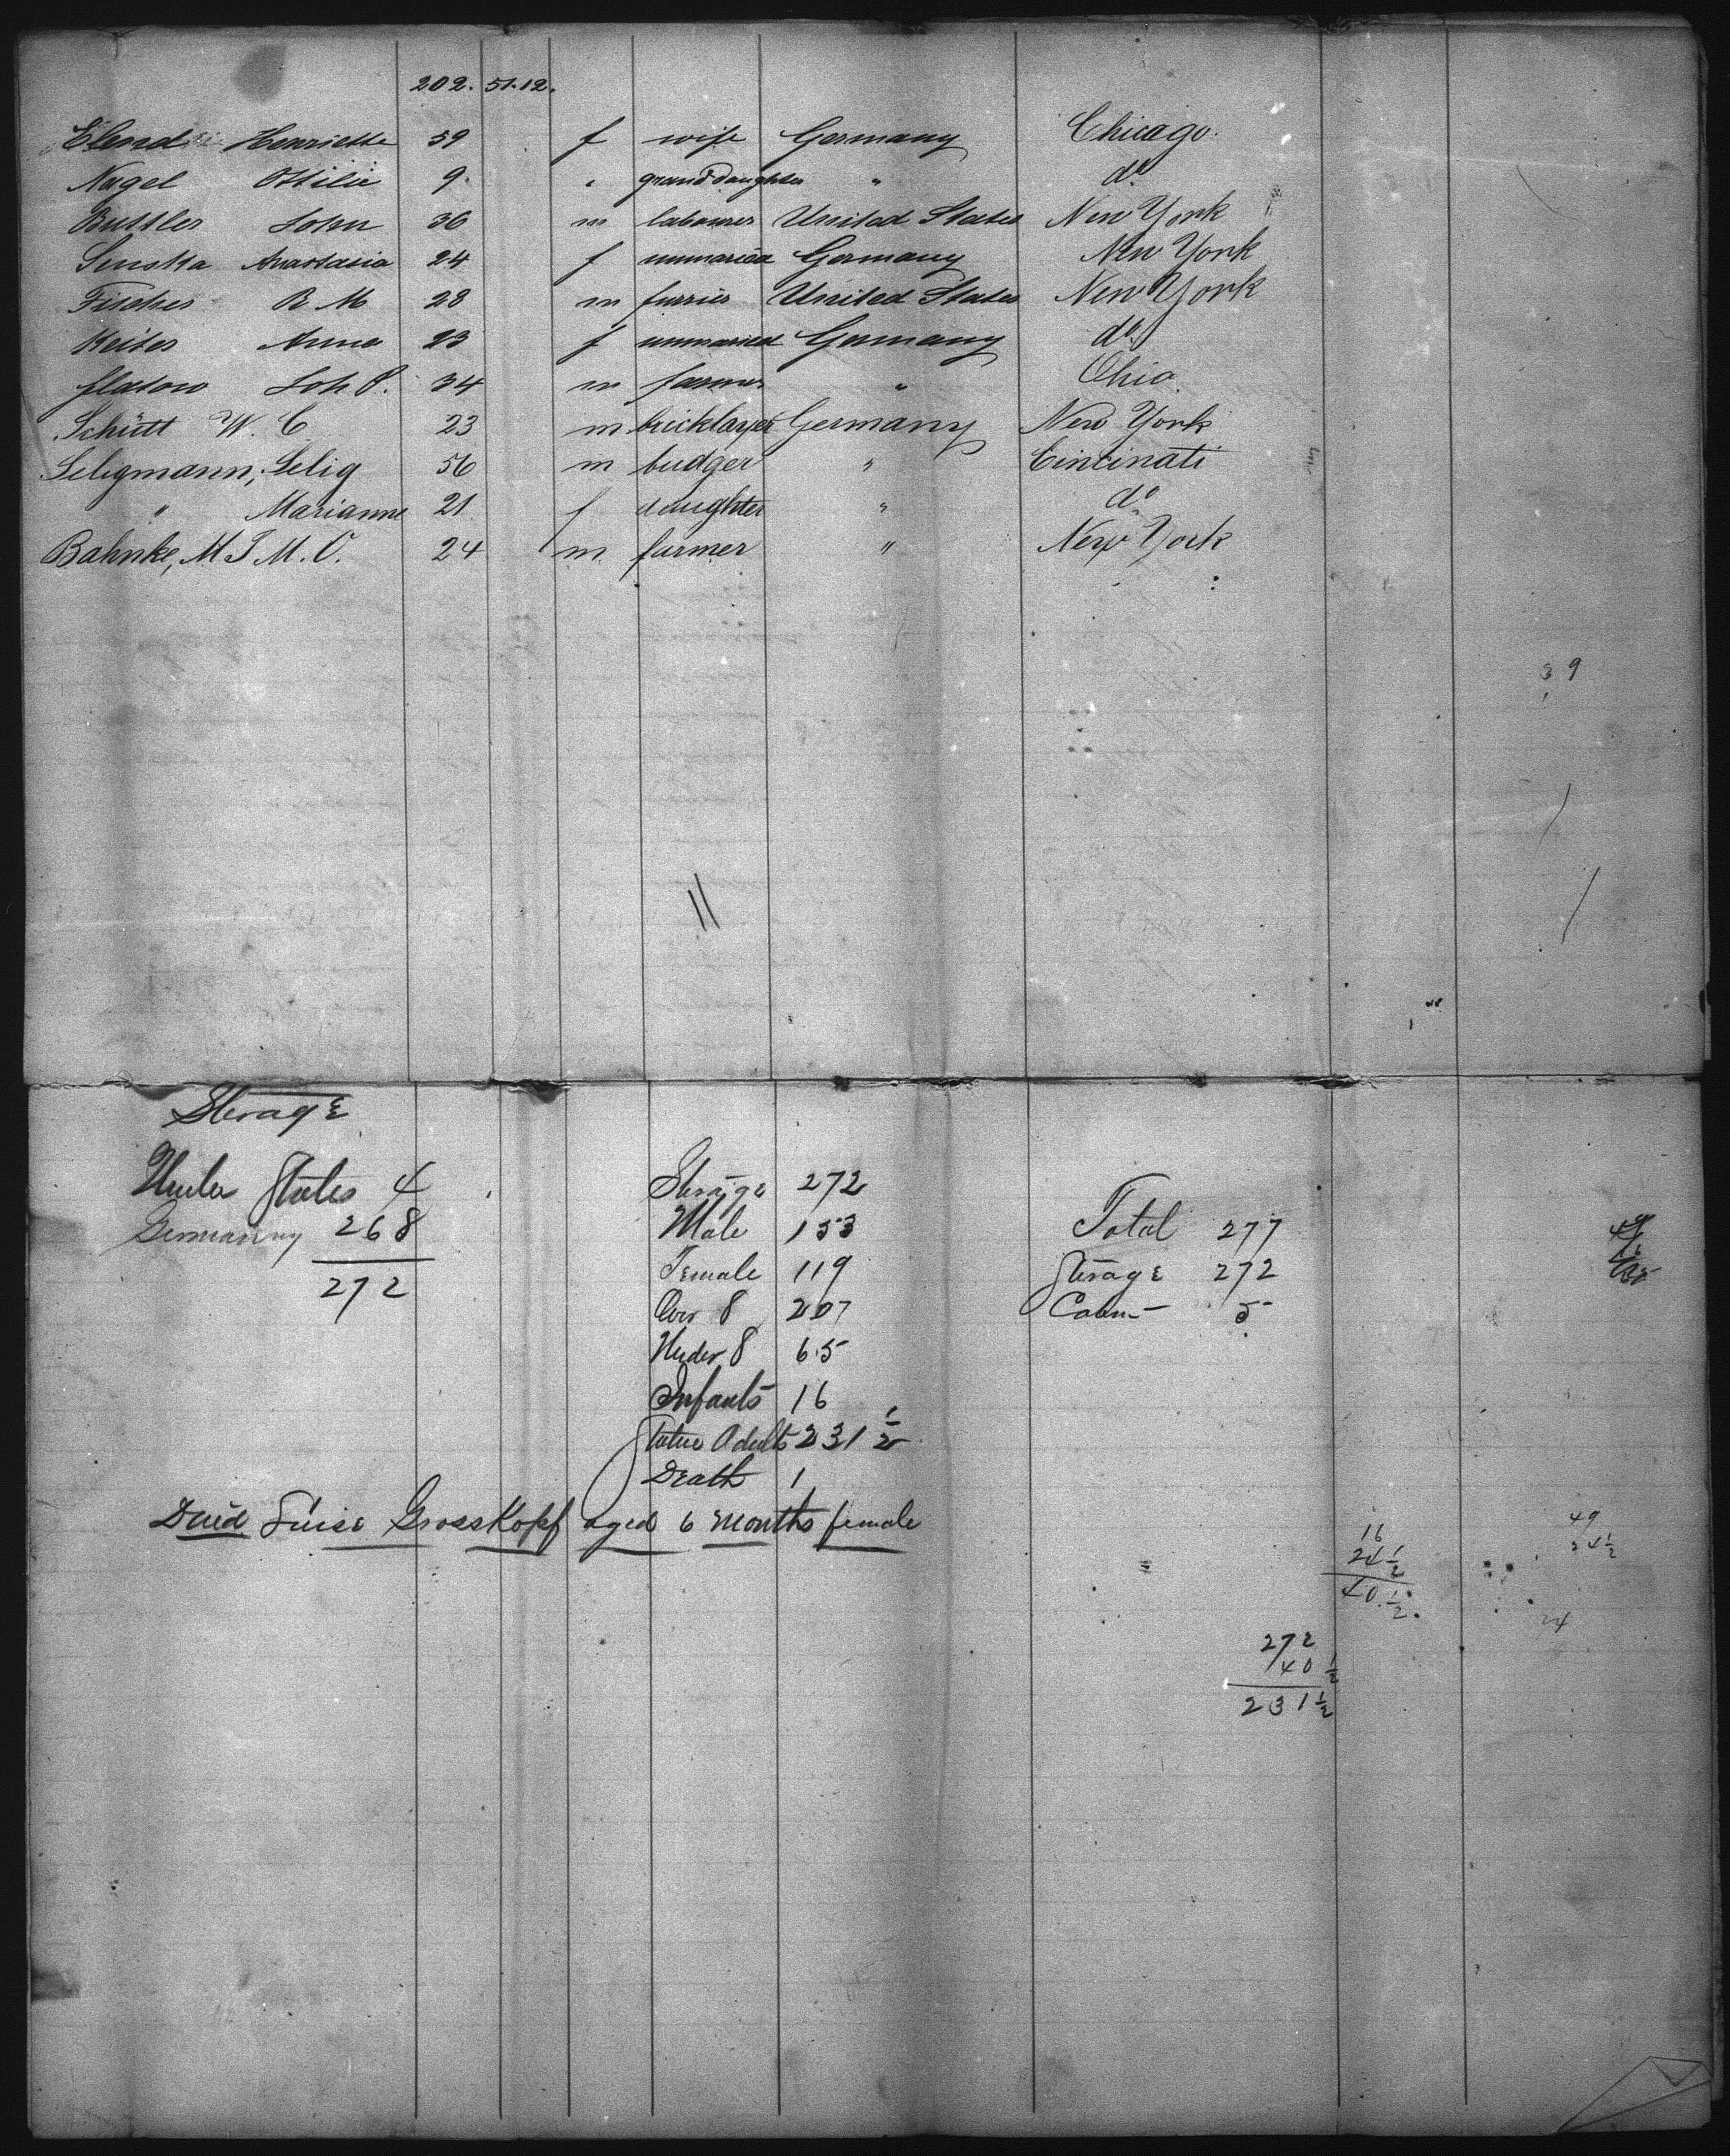 202. 51. 12.
Henriette 59 f wife Germany Chicago.
Nagel Ottilie 9 " granddaughter " do
Bussler John 36 m labourer United States New York
Anastasia 24 f unmaried Germany New York
Fischer R M 28 m furrier United States New York
Anna 23 f unmaried Germany do
Flatow Joh 34 m farmer " Ohio
Schütt W. C 23 m bricklayer Germany New York
Seligmann, Selig 56 m budger " Cincinati
" Marianne 21 f daughter " do
Bahnke, M J M. C. 24 m farmer " New York
39
11
Sterage
States 4
Germany 268
272
Sterage 272
Male 153
Female 119
Over 8 207
Under 8 65
Infants 16
Statue Adults 231 1/2
Death 1
Total 277
Sterage 272
Cabin 5
Died Luise Grosskopf aged 6 months female
16
24 1/2
40 1/2
49
24 1/2
24
272
40 1/2
231 1/2